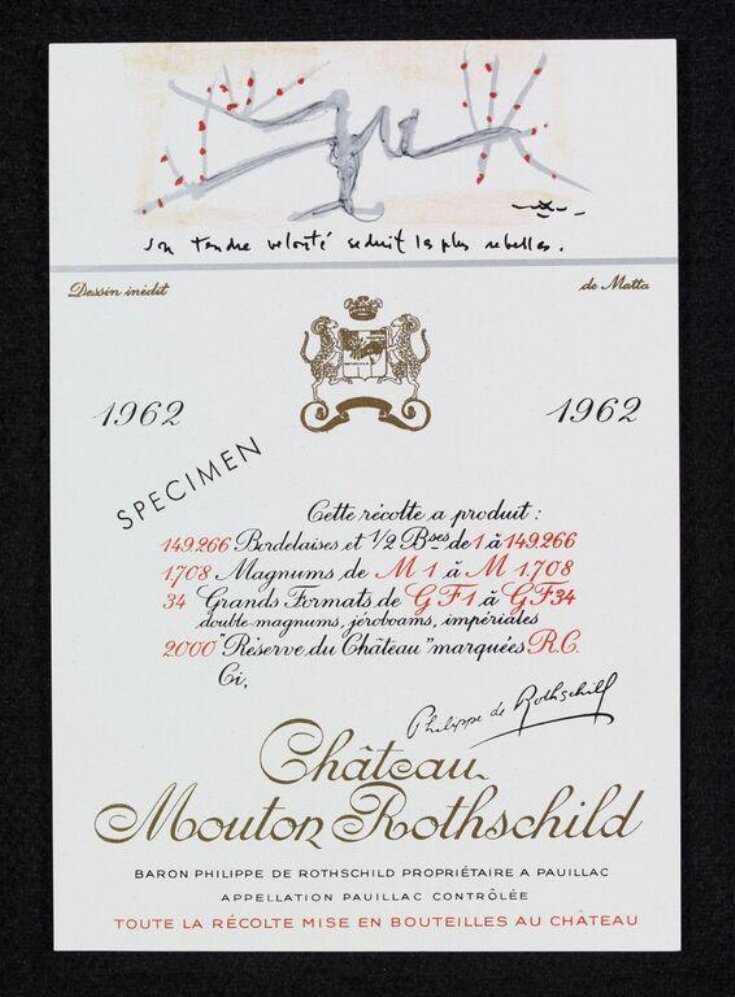 son tendre velouté séduit les plus rebelles.
Dessin inédit
de Matta
1962
1962
SPECIMEN
Cette récolte a produit :
149.266 Bordelaises et 1/2 Bses de 1 à 149.266
1.708 Magnums de M 1 à M 1.708
34 Grands Formats de GF1 à GF34
double-magnums, jéroboams, impériales
2.000 "Réserve du Château" marquées R.C.
Ci,
Philippe de Rothschild
Château
Mouton Rothschild
BARON PHILIPPE DE ROTHSCHILD PROPRIÉTAIRE A PAUILLAC
APPELLATION PAUILLAC CONTRÔLÉE
TOUTE LA RÉCOLTE MISE EN BOUTEILLES AU CHÂTEAU